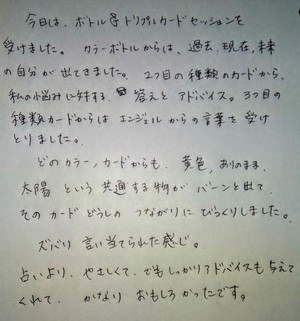 今日は、ボトル&トリプルカードセッションを
受けました。カラーボトルからは、過去、現在、未来
の自分が出てきました。2つ目の種類のカードから、
私の悩みに対する 答えと アドバイス。3つ目の
種類カードからは エンジェルからの言葉を受け
とりました。
どのカラー、カードからも、黄色、ありのまま、
太陽 という 共通する物が バーンと出て、
そのカードどうしの つながりに びっくりしました。
ズバリ 言い当てられた感じ。
占いより、やさしくて、でもしっかりアドバイスも与えて
くれて、かなり おもしろかったです。